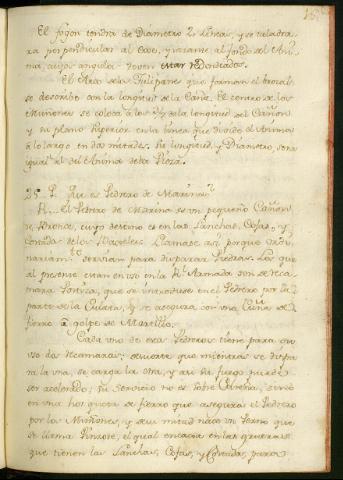 El fogon tendra de Diametro 2 lineas, y se taladra-
ra perpendicular al Exe, y rasante al fondo del Ani-
ma, cuyos angulos deven estar redondeados.
El Arco de la Tulipane que forma el brocal
se describe con la longitud de la Caña. El centro de los
Muñones se coloca a los 3/7 de la longitud del Cañon
y su plano superior en la linea que divide el Anima
a lo largo en dos mitades. Su longitud y Diametro, sera
igual al del Anima de la Pieza.
25. P. Que es Pedrero de Marina?
R. El Pedrero de Marina es un pequeño Cañon
de Bronce, cuyo destino es en las Lanchas, Cofas, y
de los Baxeles. Llamase asi porque ordi-
nariam.te servian para disparar Piedras. Los que
al presente estan en uso en la R.l Armada son de reca-
mara Postiza, que se introduce en el Pedrero por la
parte de la Culata, y se asegura con una Cuña de
fierro a golpe de Martillo.
Cada uno de esos Pedreros tiene para su
uso dos Recamaras; de suerte que mientras se dispa-
ra la una, se carga la otra, y asi su fuego puede
ser acelerado; su servicio no es sobre Cureña, sino
en una horqueta de fierro que asegura el Pedrero
por los Muñones, y de su mitad nace un Perno que
se llama Pinzote, el qual encaxa en las
que tienen las Lanchas, Cofas, y para